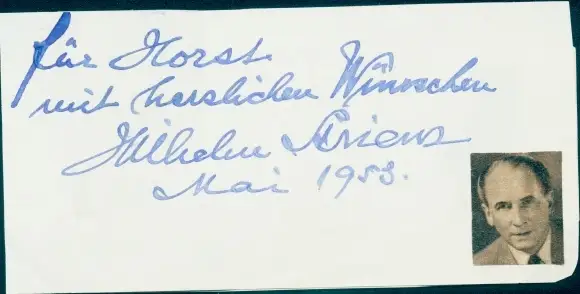 für Horst
mit herzlichen Wünschen
Wilhelm
Mai 1953.